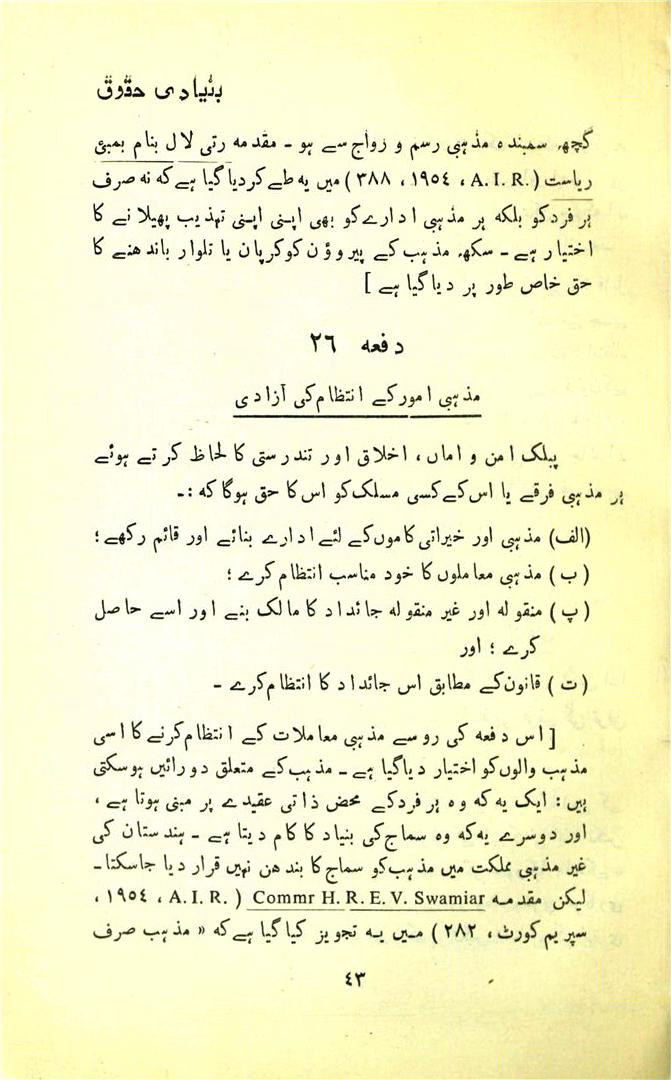 بنیادی حقوق
کچھ سمبندھ مذہبی رسم و رواج سے ہو ۔ مقدمہ رتی لال بنام بمبئی
ریاست (.A. I. R ، ۱۹۵٤ ، ۳۸۸ ) میں یہ طے کردیا گیا ہے کہ نہ صرف
ہر فرد کو بلکہ ہر مذہبی ادارے کو بھی اپنی اپنی تہذیب پھیلانے کا
اختیار ہے ۔ سکھ مذہب کے پیروؤن کو کرپان یا تلوار باندھنے کا
حق خاص طور پر دیا گیا ہے ]
دفعہ ۲٦
مذہبی امور کے انتظام کی آزادی
پبلک امن و اماں، اخلاق اور تندرستی کا لحاظ کرتے ہوئے
ہر مذہبی فرقے یا اس کے کسی مسلک کو اس کا حق ہوگا کہ :۔
(الف) مذہبی اور خیراتی کاموں کے لئے ادارے بنائے اور قائم رکھے ؛
( ب ) مذہبی معاملوں کا خود مناسب انتظام کرے ؛
( پ ) منقولہ اور غیر منقولہ جائداد کا مالک بنے اور اسے حاصل
کرے ؛ اور
( ت ) قانون کے مطابق اس جائداد کا انتظام کرے ۔
[ اس دفعہ کی رو سے مذہبی معاملات کے انتظام کرنے کا اسی
مذہب والوں کو اختیار دیا گیا ہے ۔ مذہب کے متعلق دو رائیں ہوسکتی
ہیں : ایک یہ کہ وہ ہر فرد کے محض ذاتی عقیدے پر مبنی ہوتا ہے ،
اور دوسرے یہ کہ وہ سماج کی بنیاد کا کام دیتا ہے ۔ ہندستان کی
غیر مذہبی مملکت میں مذہب کو سماج کا بندھن نہیں قرار دیا جاسکتا ۔
لیکن مقدمہ Commr H. R. E. V. Swamiar ( .A. I. R ، ۱۹۵٤ ،
سپریم کورٹ ، ۲۸۲ ) میں یہ تجویز کیا گیا ہے کہ « مذہب صرف
٤۳